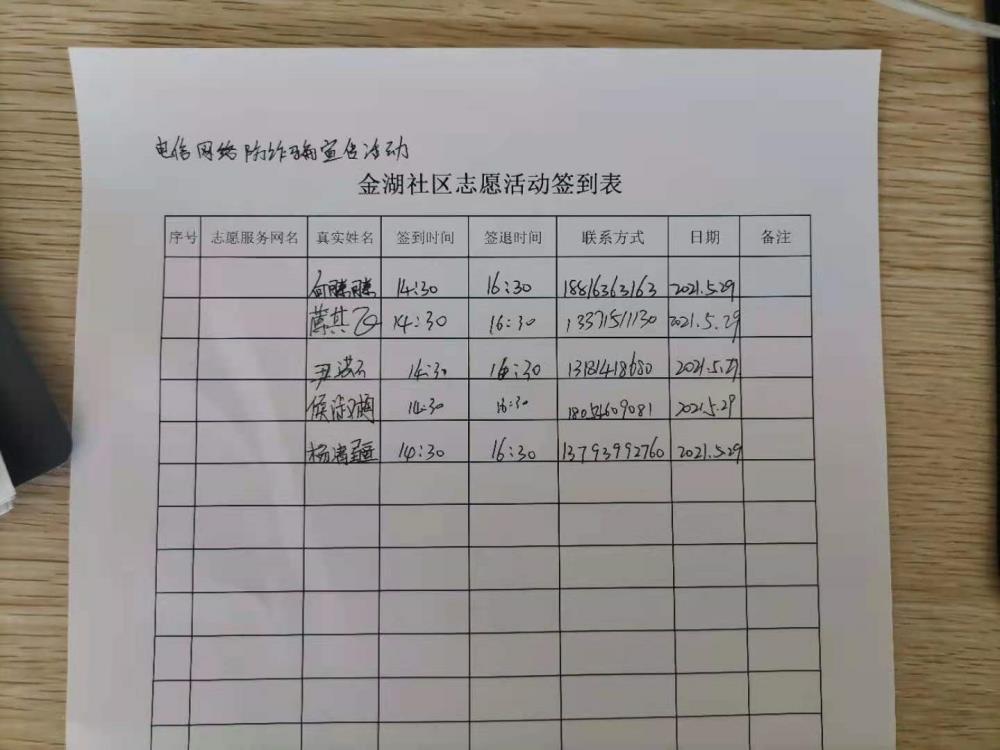 电信网络防诈骗宣传活动
金湖社区志愿活动签到表
序号 志愿服务网名 真实姓名 签到时间 签退时间 联系方式 日期 备注
何腾腾 14:30 16:30 18816363163 2021.5.29
14:30 16:30 13371511130 2021.5.29
尹诺 14:30 16:30 13181418680 2021.5.29
侯淑娟 14:30 16:30 18054609081 2021.5.29
14:30 16:30 13793992760 2021.5.29